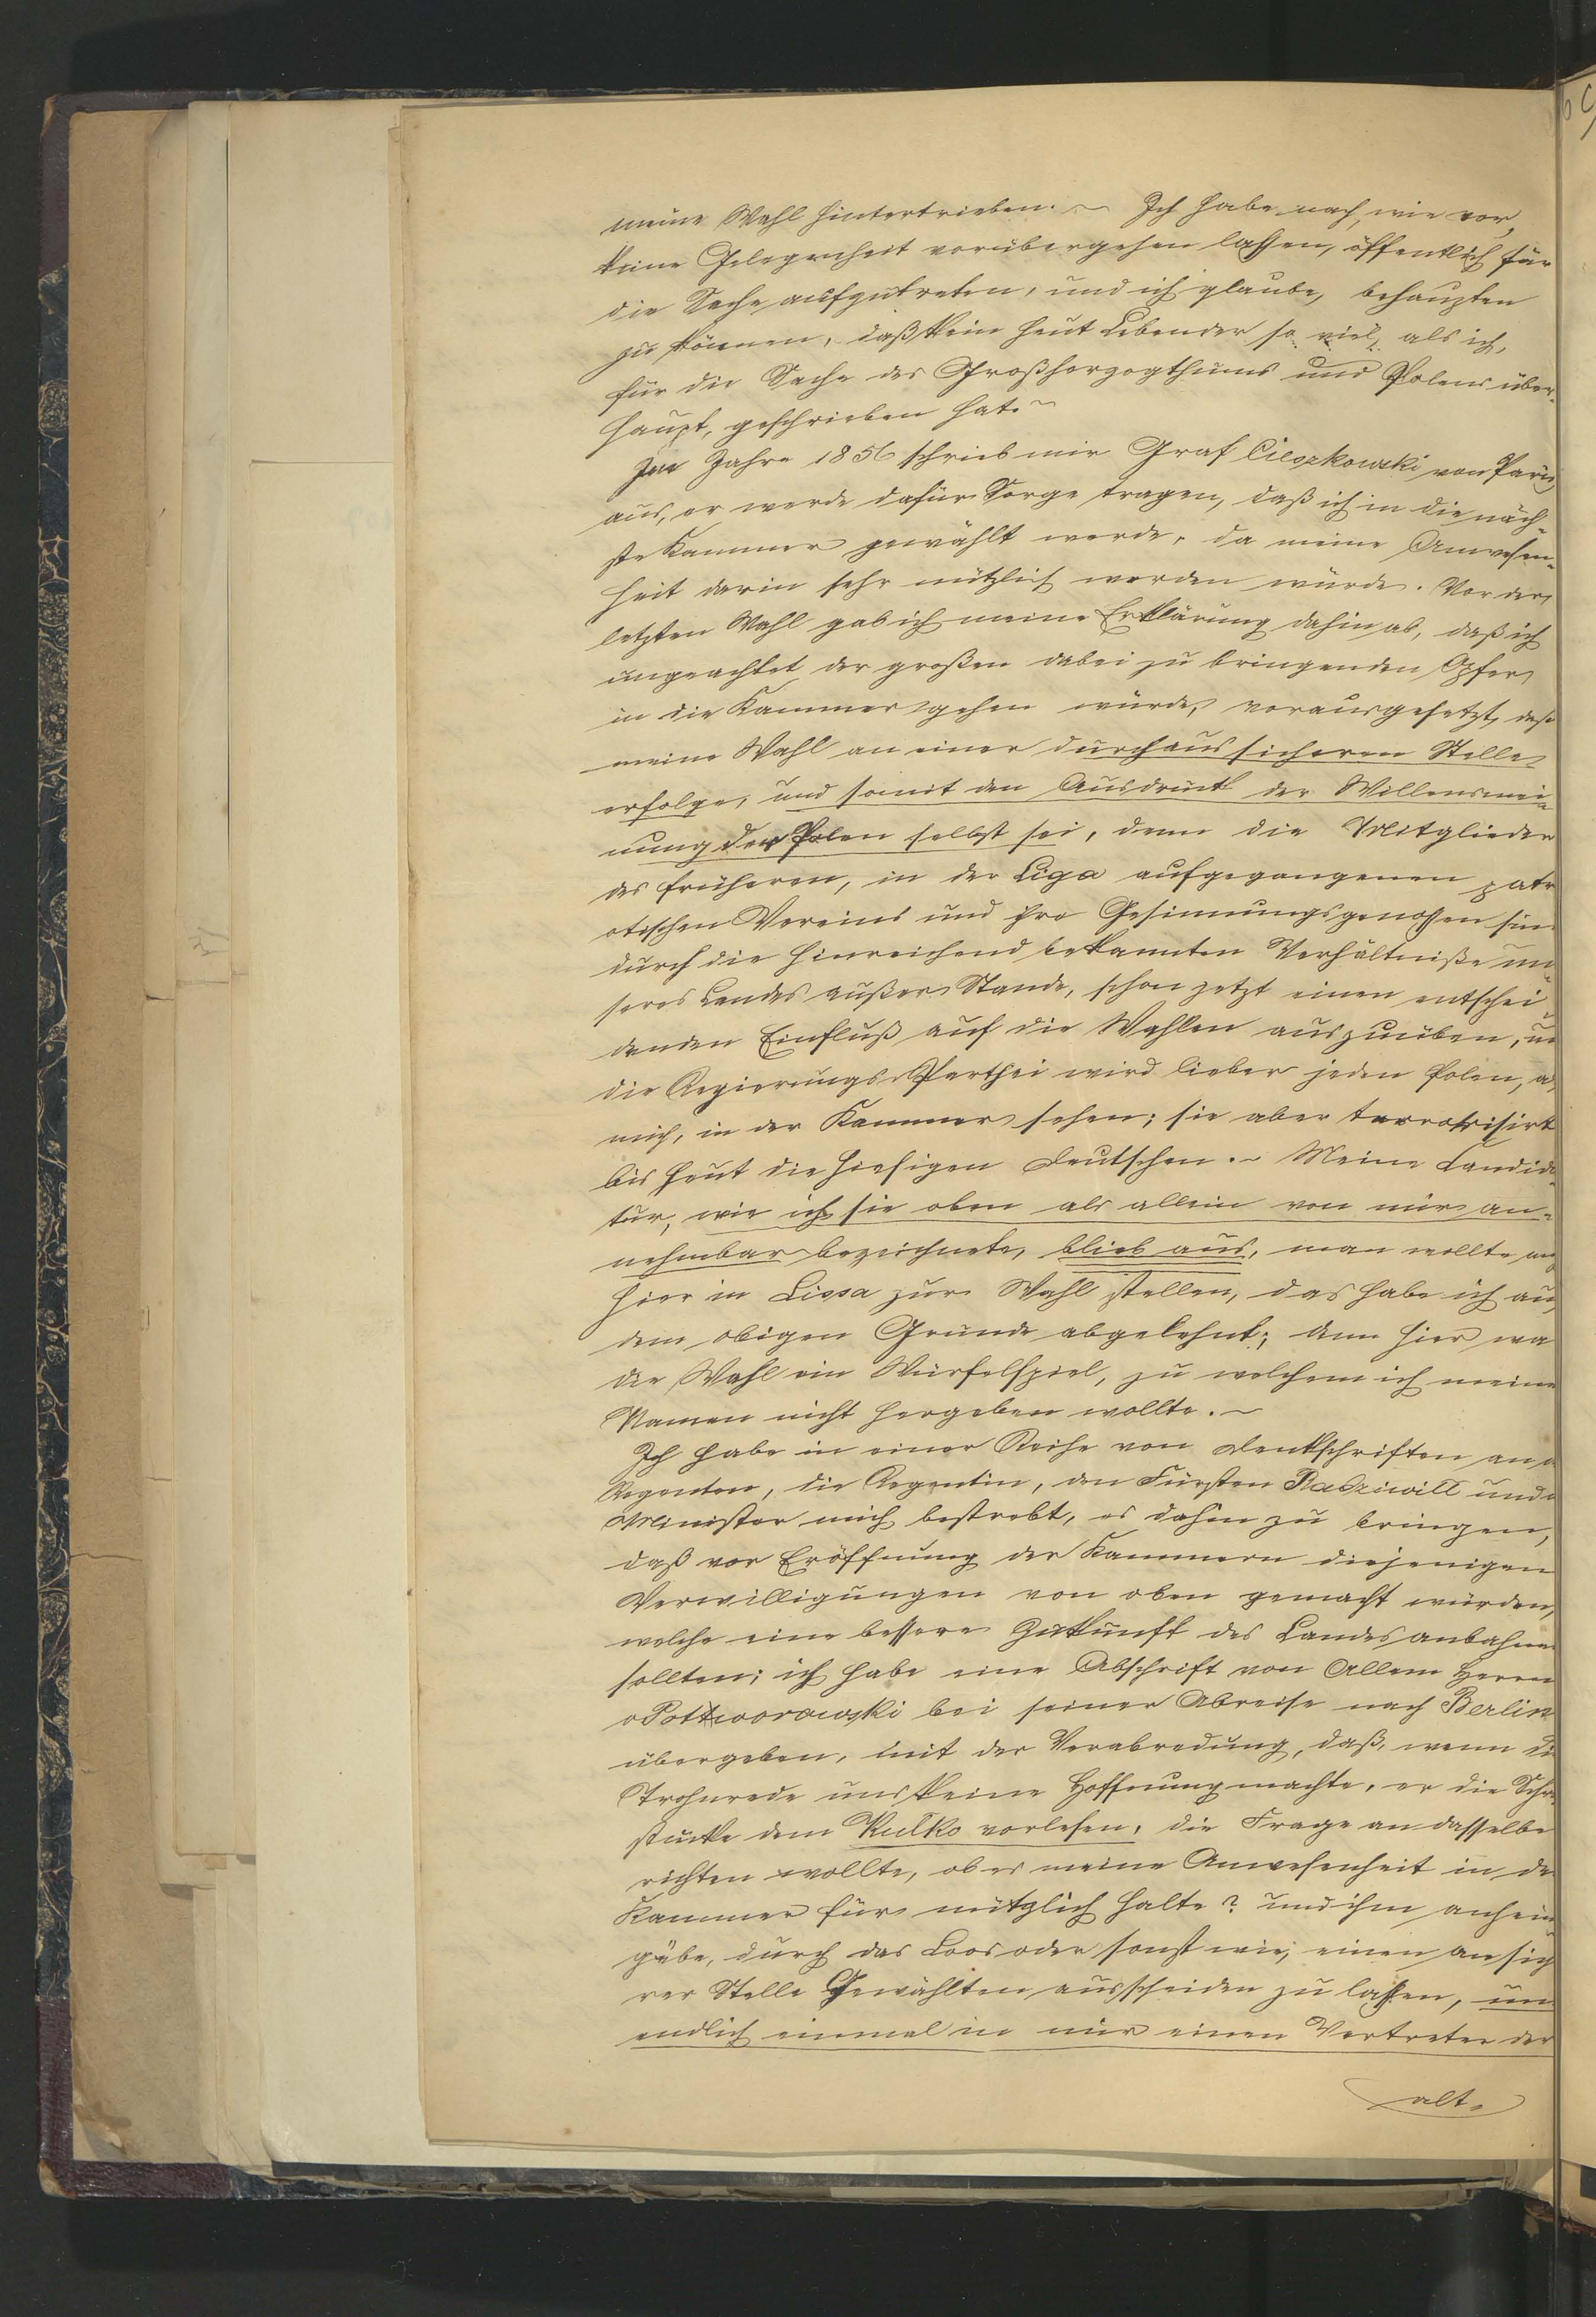 meine Wahl hintertrieben. ~ Ich habe nach, wie vor,
keine Gelegenheit vorübergehen lassen, öffentlich für
die Sache aufzutreten, und ich glaube, behaupten
zu können, daß kein heut Lebender so viel, als ich,
für die Sache des Großherzogthums und Polens über-
haupt, geschrieben hat. ~
Im Jahre 1856 schrieb mir Graf Cieszkowski von Paris
aus, er werde dafür Sorge tragen, daß ich in die näch-
ste Kammer gewählt werde, da meine Anwesen-
heit darin sehr nützlich werden würde. Vor der
letzten Wahl gab ich meine Erklärung dahin ab, daß ich
ungeachtet der großen dabei zu bringenden Opfer
in die Kammer gehen würde, vorausgesetzt, daß
meine Wahl an einer durchaus sicheren Stelle
erfolge, und somit den Ausdruck der Willensmei-
nung der Polen selbst sei, denn die Mitglieder
des früheren, in der Liga aufgegangenen patr
otischen Vereins und ihre Gesinnungsgenossen sin
durch die hinreichend bekannten Verhältniße un-
seres Landes außer Stande, schon jetzt einen entschei-
denden Einfluß auf die Wahlen auszuüben, un
die Regierungs-Parthei wird lieber jeden Polen, a
mich, in der Kammer sehen; sie aber terrorisirt
bis heut die hiesigen Deutschen. ~ Meine Candida
tur, wie ich sie oben als allein von mir an-
nehmbar bezeichnete, blieb aus, man wollte
hier in Lissa zur Wahl stellen, das habe ich au
dem obigen Grunde abgelehnt; denn hier wa
die Wahl ein Würfelspiel, zu welchem ich meine
Namen nicht hergeben wollte. ~
Ich habe in einer Reihe von Denkschriften an d
Regenten, die Regentin, den Fürsten Radziwill und d
Minister mich bestrebt, es dahin zu bringen,
daß vor Eröffnung der Kammern diejenigen
Verwilligungen von oben gemacht würden,
welche eine bessere Zukunft des Landes anbahne
sollten; ich habe eine Abschrift von Allem Herrn
v Pottworowski bei seiner Abreise nach Berlin
übergeben, mit der Verabredung, daß, wenn di
Trohnrede uns keine Hoffnung machte, er die Schr
stücke dem Kulko vorlesen, die Frage an dasselbe
richten wollte, ob es meine Anwesenheit in de
Kammer für nützlich halte? und ihm anheim
gäbe, durch das Loos oder sonst wie, einen an sich
rer Stelle Gewählten ausscheiden zu lassen, um
endlich einmal in mir einen Vertreter der
alt-